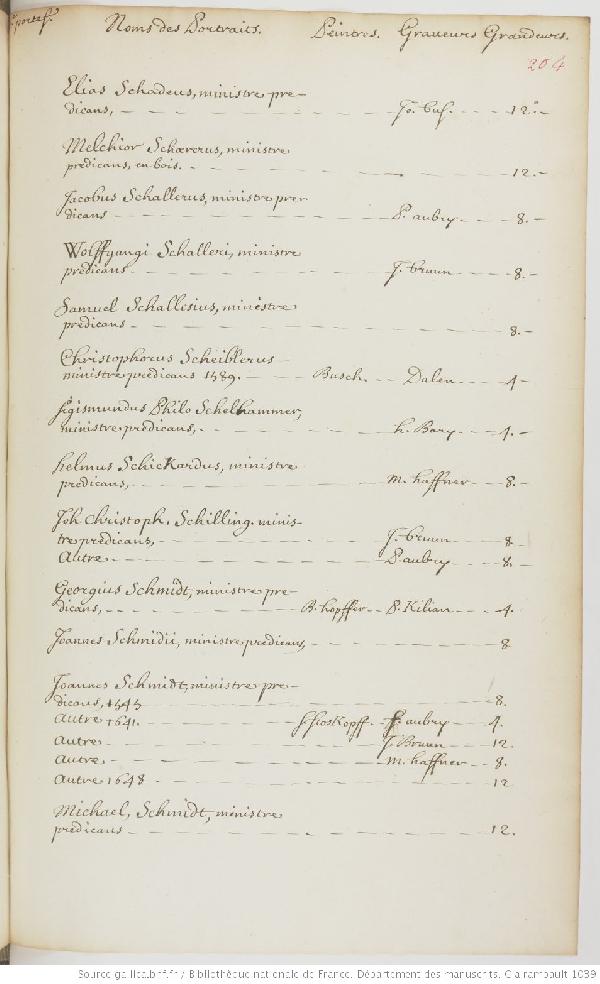 portef.
Noms des Portraits. Peintres. Graveurs Grandeurs.
204
Elias Schadeus, ministre pre-
dicans, Jo. Cus. 12.
Melchior Schærerus, ministre
predicans, en bois. 12.
Jacobus Schallerus, ministre pre-
dicans P. aubry 8.
Wolffgangi Schalleri, ministre
predicans J. bruun 8.
Samuel Schallesius, ministre
predicans 8.
Christophorus Scheiblerus
ministre predicans 1589. Busch. Dalen 4
Sigismundus Philo Schelhammer,
ministre predicans, h. Bary 4.
helmus Schickardus, ministre
predicans, m. haffner 8.
Joh. Christoph. Schilling. minis-
tre predicans, J. bruun 8
Autre P. aubry 8.
Georgius Schmidt, ministre pre-
dicans, B. hopffer P. Kilian 4.
Joannes Schmidii, ministre predicans, 8
Joannes Schmidt, ministre pre-
dicans, 1545 8.
Autre 1641. S. Stoskopff P. aubry 4.
Autre J. Bruun 12.
Autre m. haffner 8.
Autre 1648 12
Michael Schmidt, ministre
predicans 12.
Source gallica.bnf.fr / Bibliothèque nationale de France. Département des manuscrits. Clairambault 1039